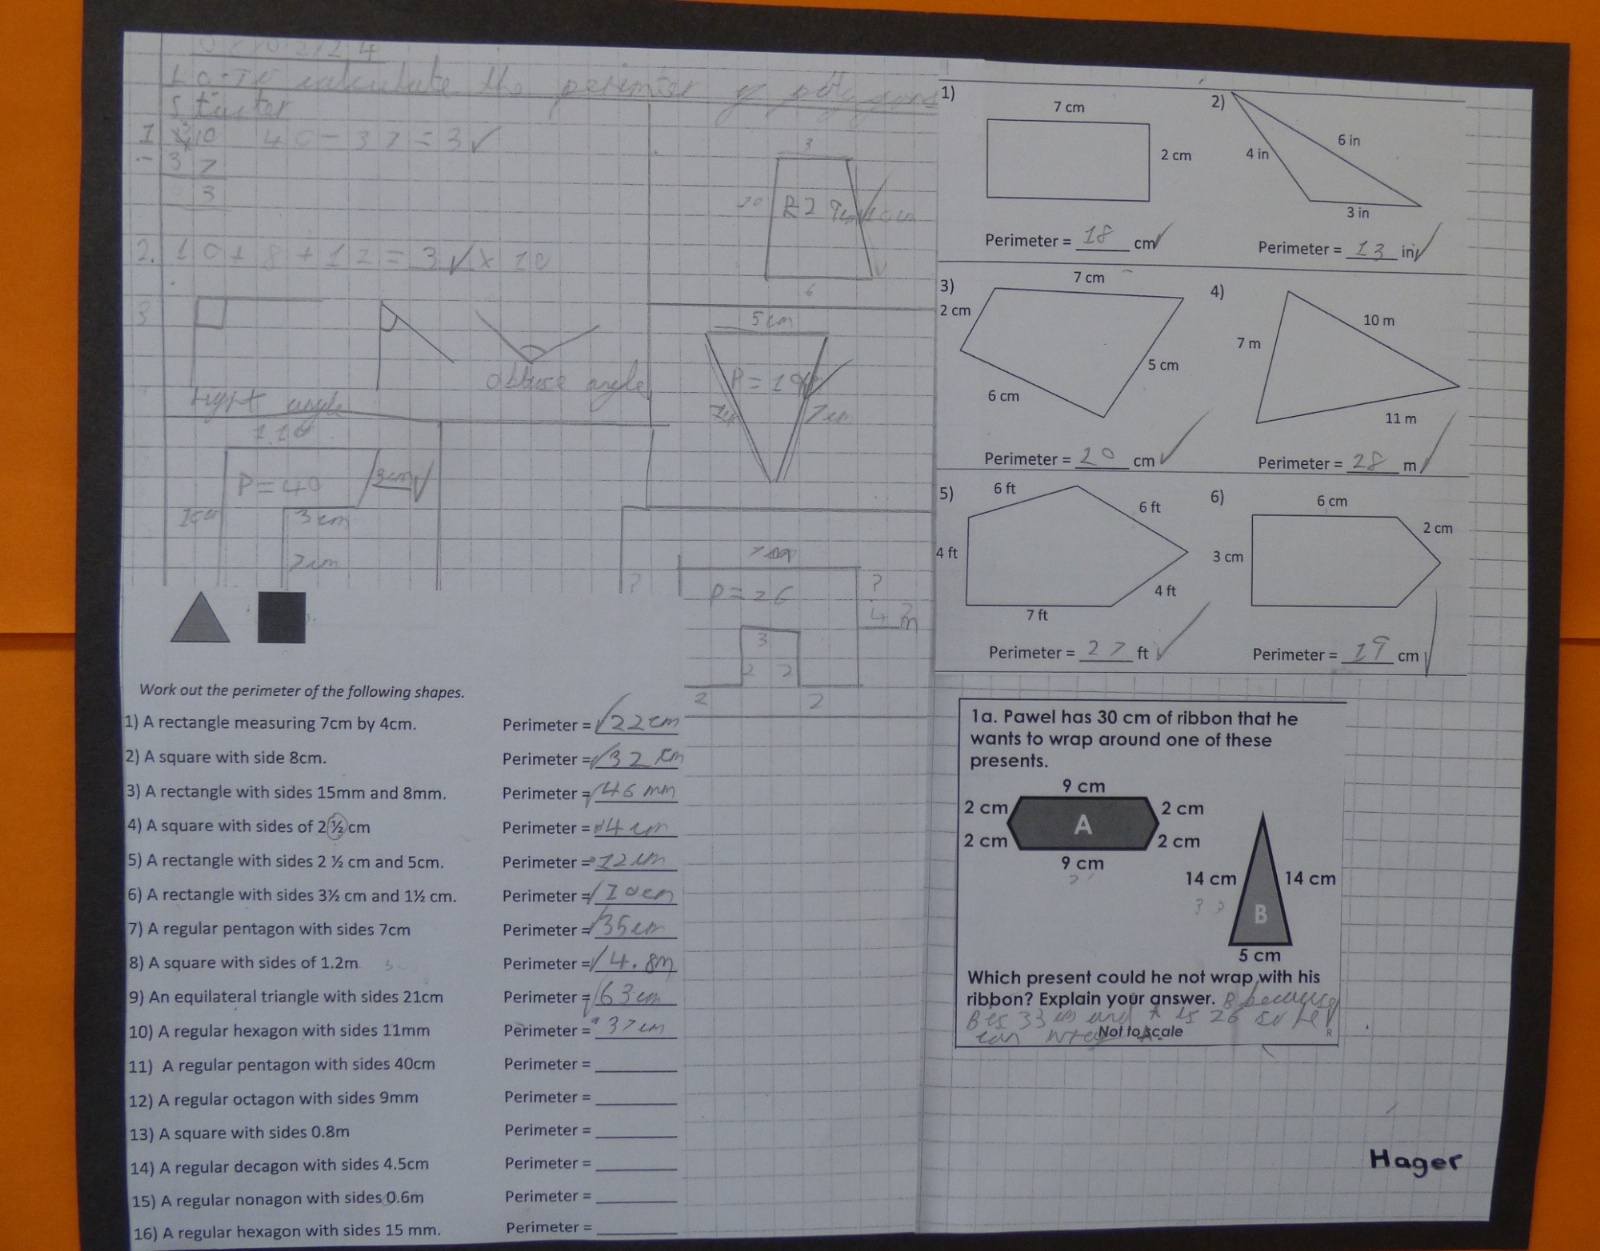 LO-To calculate the perimeter of polygons
Starter
1 10 40 - 37 = 3
- 3 7
3
2. 10 + 8 + 12 = 3 × 10
3
right angle
obtuse angle
P=40
3cm
3cm
2cm
3
10
6
5cm
7cm
P=26
?
?
3
2 2
2 2
4 m
Work out the perimeter of the following shapes.
1) A rectangle measuring 7cm by 4cm. Perimeter = 22cm
2) A square with side 8cm. Perimeter = 32cm
3) A rectangle with sides 15mm and 8mm. Perimeter = 46mm
4) A square with sides of 2½cm Perimeter = 4cm
5) A rectangle with sides 2 ½ cm and 5cm. Perimeter = 12cm
6) A rectangle with sides 3½ cm and 1½ cm. Perimeter = 10cm
7) A regular pentagon with sides 7cm Perimeter = 35cm
8) A square with sides of 1.2m Perimeter = 4.8m
9) An equilateral triangle with sides 21cm Perimeter = 63cm
10) A regular hexagon with sides 11mm Perimeter = 37cm
11) A regular pentagon with sides 40cm Perimeter =
12) A regular octagon with sides 9mm Perimeter =
13) A square with sides 0.8m Perimeter =
14) A regular decagon with sides 4.5cm Perimeter =
15) A regular nonagon with sides 0.6m Perimeter =
16) A regular hexagon with sides 15 mm. Perimeter =
1)
7 cm
2 cm
Perimeter = 18 cm
2)
6 in
4 in
3 in
Perimeter = 13 in
3)
7 cm
2 cm
5 cm
6 cm
Perimeter = 20 cm
4)
10 m
7 m
11 m
Perimeter = 28 m
5)
6 ft
6 ft
4 ft
4 ft
7 ft
Perimeter = 27 ft
6)
6 cm
2 cm
3 cm
Perimeter = 19 cm
1a. Pawel has 30 cm of ribbon that he
wants to wrap around one of these
presents.
9 cm
2 cm 2 cm
A
2 cm 2 cm
9 cm
14 cm 14 cm
B
5 cm
Which present could he not wrap with his
ribbon? Explain your answer. B because
B is 33 cm and A is 26 so he
can wrap A.
Not to scale
R
Hager